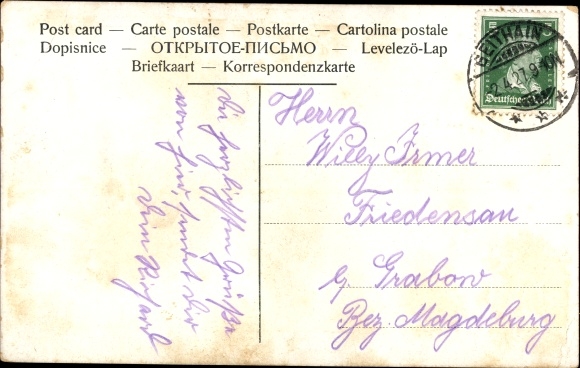 Post card — Carte postale — Postkarte — Cartolina postale
Dopisnice — ОТКРЫТОЕ-ПИСЬМО — Levelező-Lap
Briefkaart — Korrespondenzkarte
Deutsches
Die herzlichsten Grüße
von hier sendet Dir
Dein Richard
Herrn
Willy Irmer
Friedensau
b/ Grabow
Bez. Magdeburg